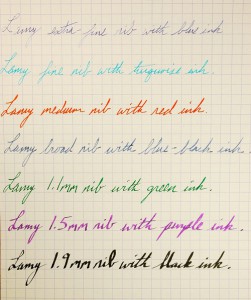 Lamy extra fine nib with blue ink
Lamy fine nib with turquoise ink.
Lamy medium nib with red ink.
Lamy broad nib with blue-black ink.
Lamy 1.1mm nib with green ink.
Lamy 1.5mm nib with purple ink.
Lamy 1.9mm nib with black ink.